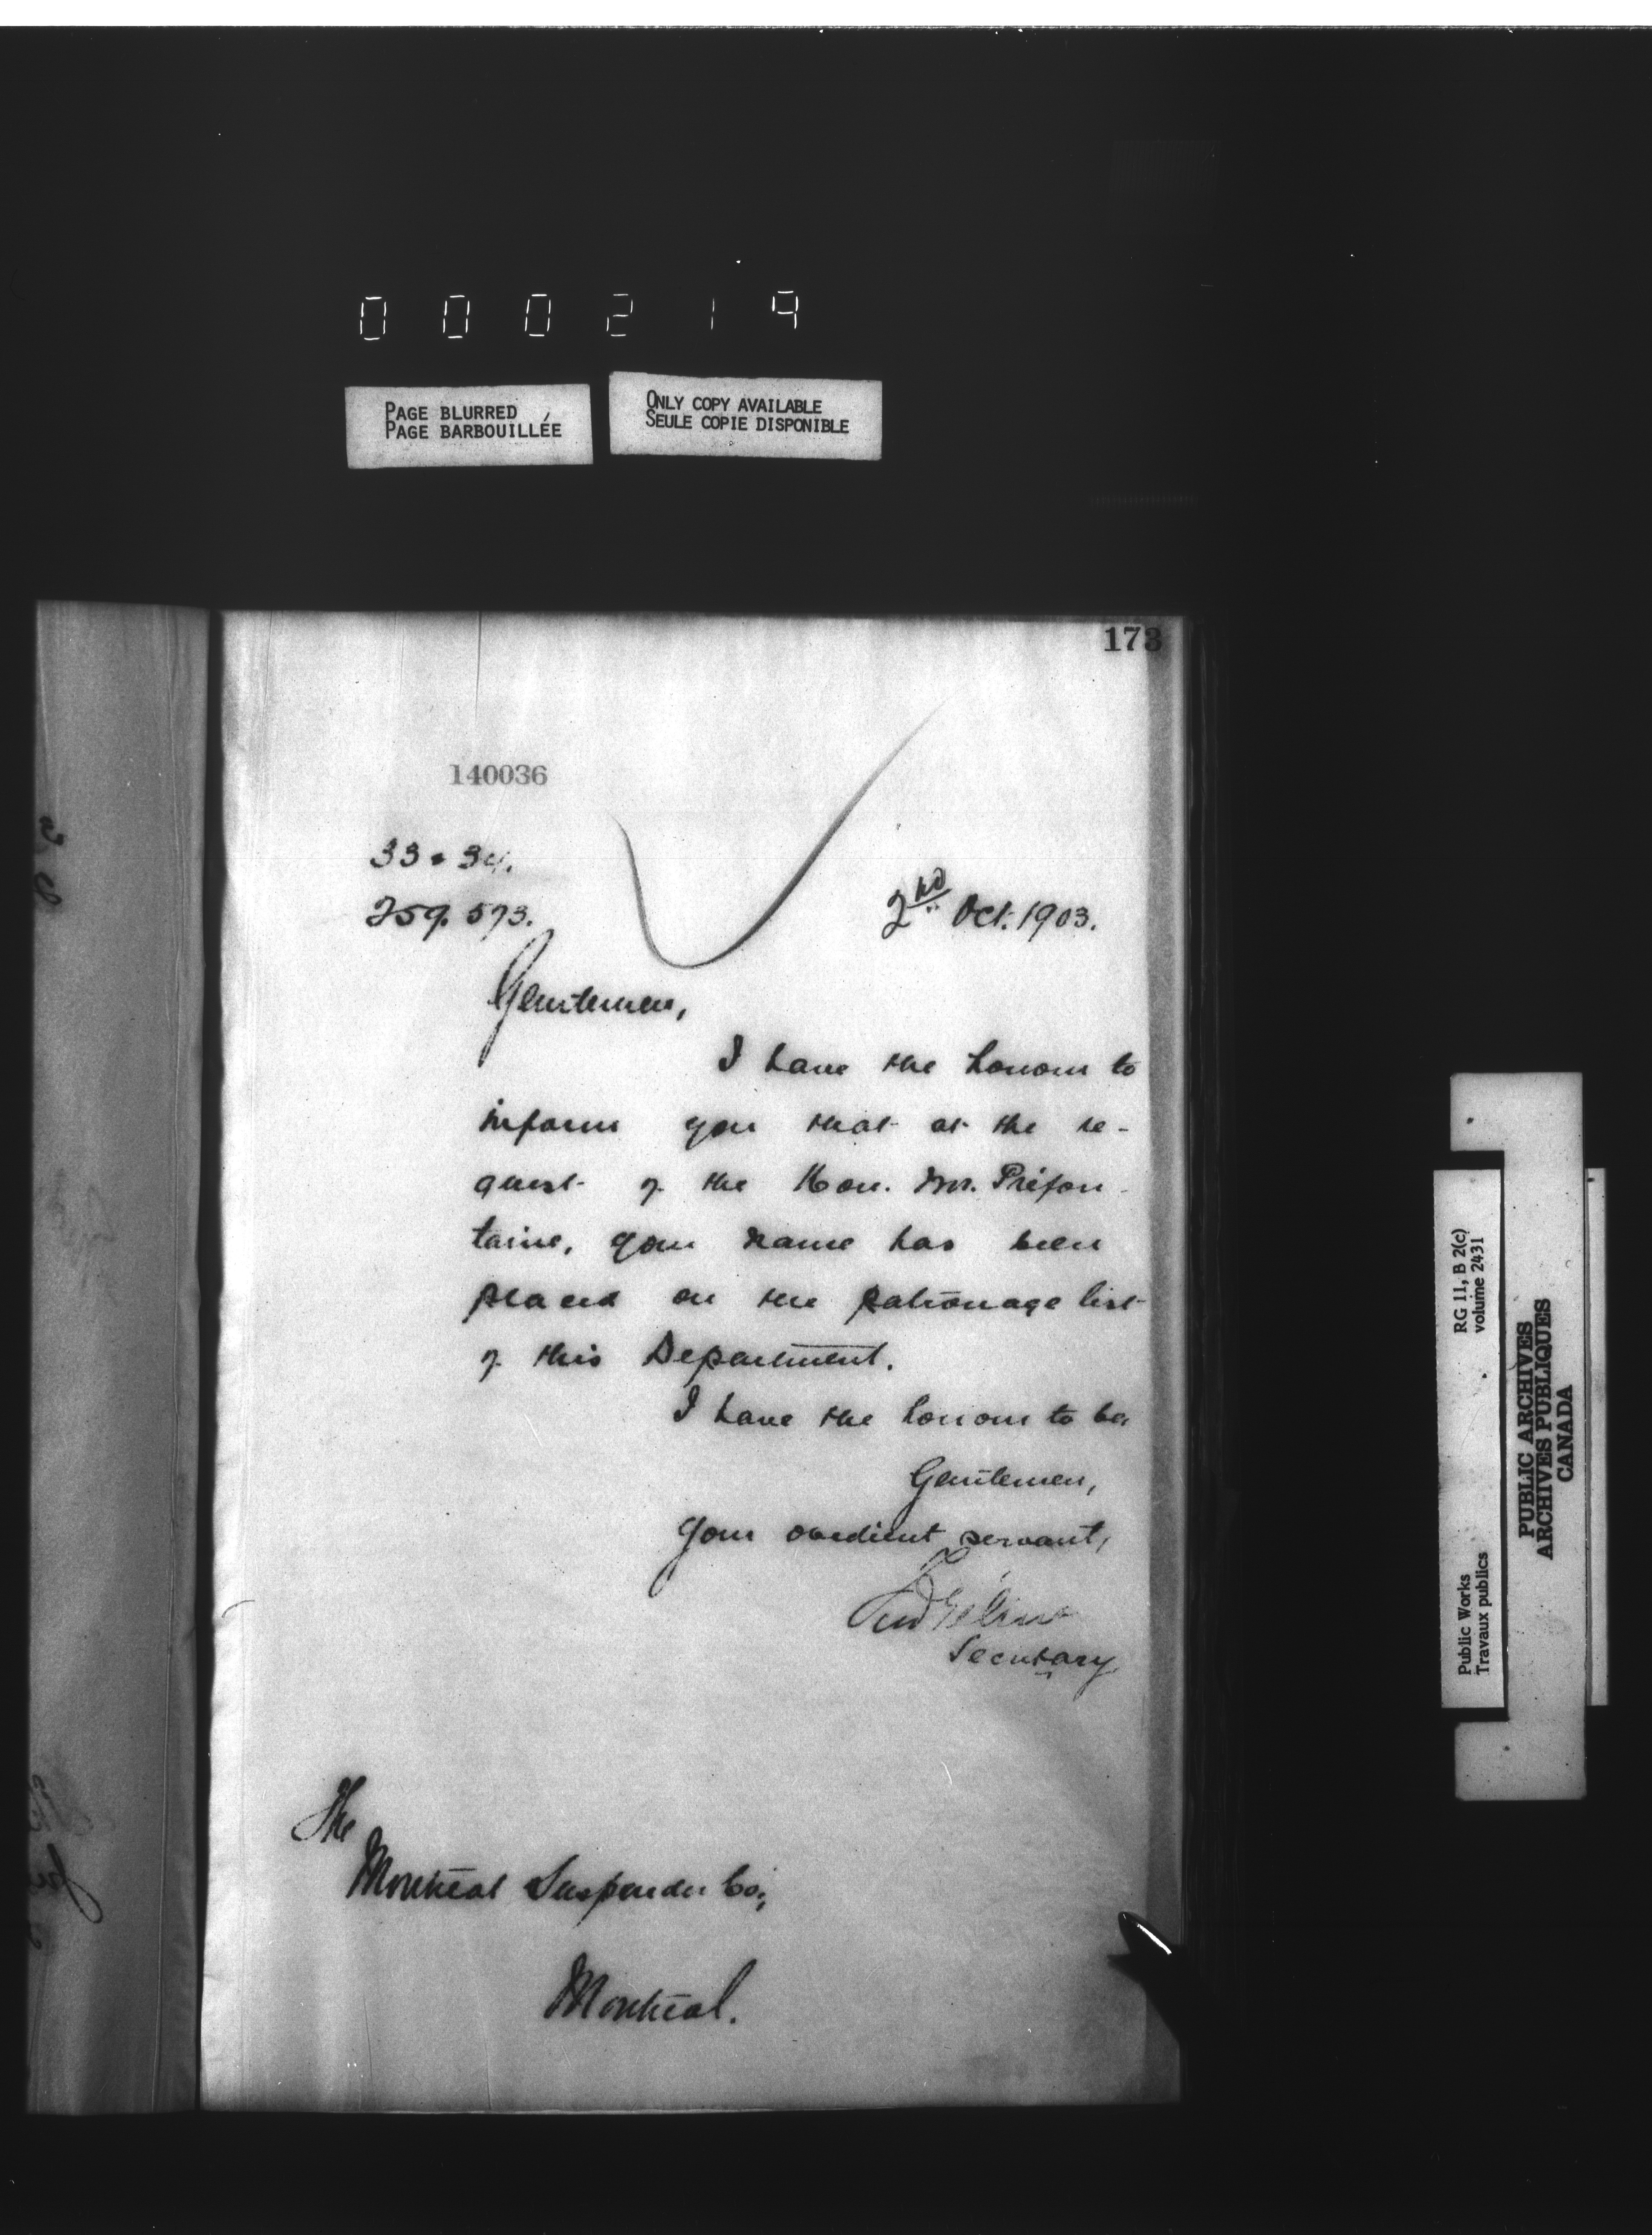 000219
PAGE BLURRED
PAGE BARBOUILLÉE
ONLY COPY AVAILABLE
SEULE COPIE DISPONIBLE
173
140036
33 • 34.
259.573.
2nd Oct. 1903.
Gentlemen,
I have the honour to
inform you that at the re-
quest of the Hon. Mr. Préfon-
taine, your name has been
placed on the patronage list
of this Department.
I have the honour to be,
Gentlemen,
Your obedient servant,
Secretary
The
Montreal Suspender Co.,
Montreal.
Public Works
Travaux publics
RG 11, B 2(c)
volume 2431
PUBLIC ARCHIVES
ARCHIVES PUBLIQUES
CANADA